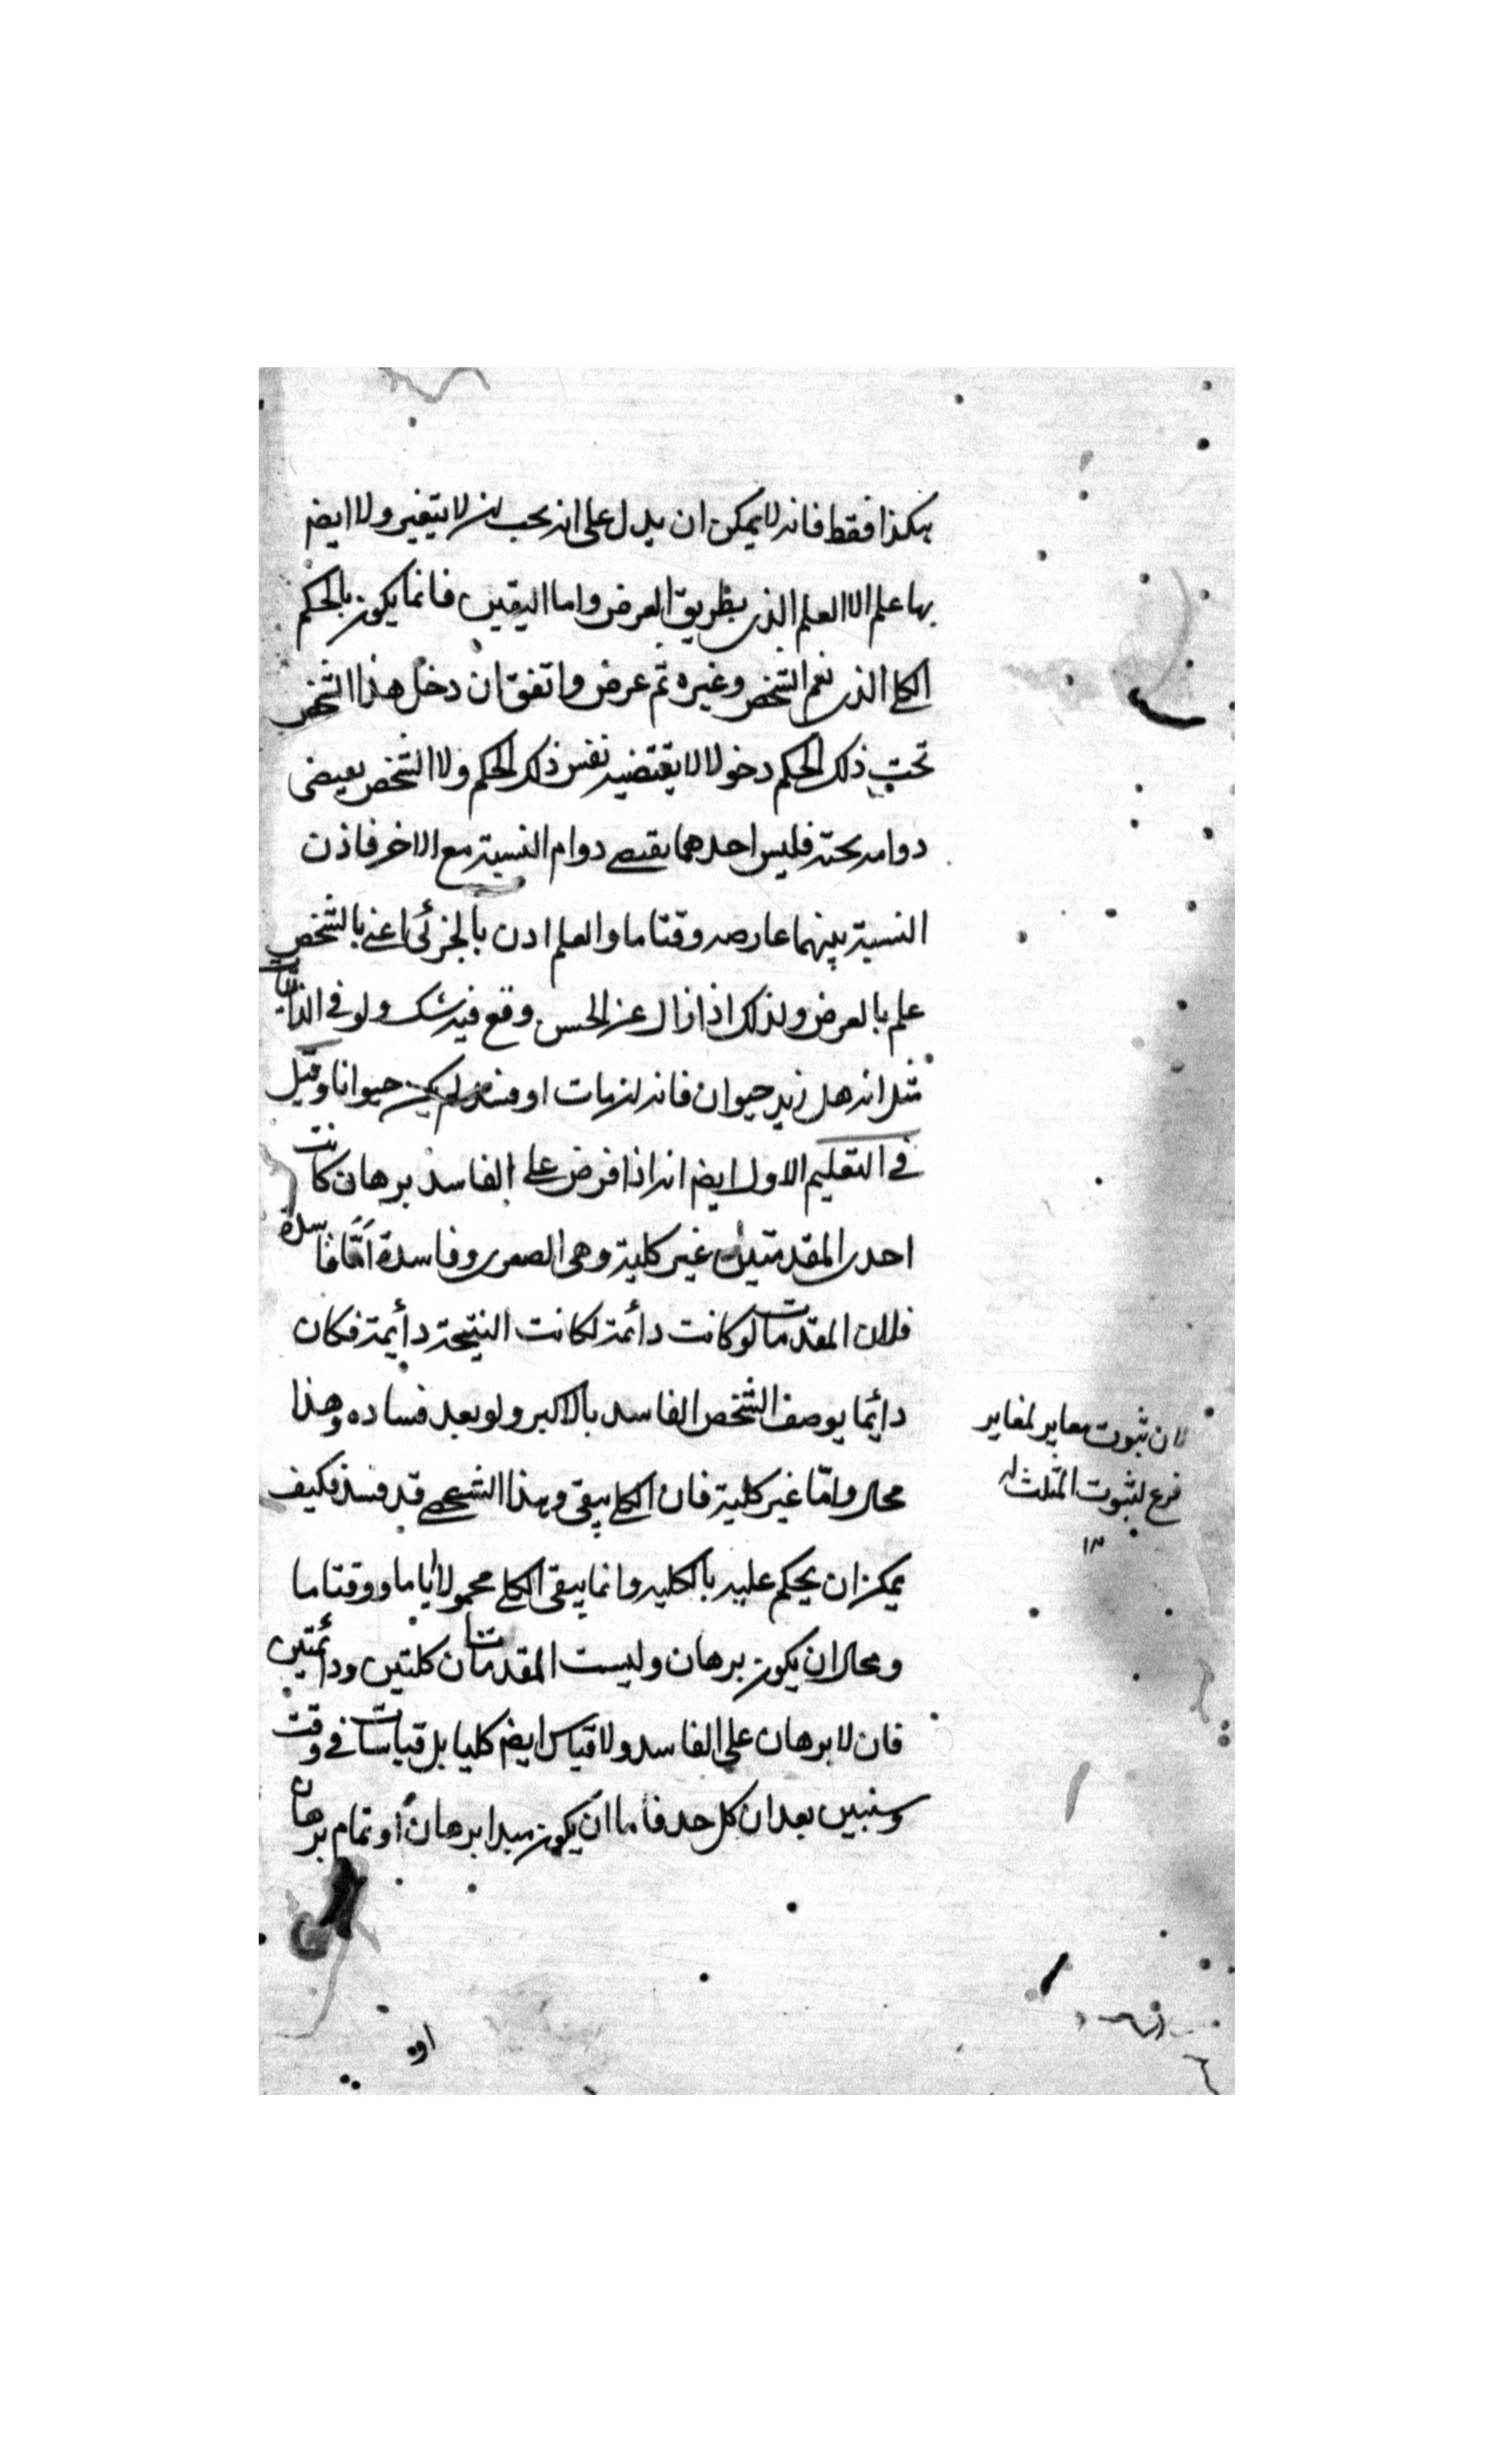 هكذا فقط فانه لا يمكن ان يدل على انه يجب ان لا يتغير ولا ايضا
بها علم الا العلم الذى بطريق العرض واما اليقين فانما يكون بالحكم
الكلى الذى يعم الشخص وغيره ثم عرض واتفق ان دخل هذا الشخص
تحت ذلك الحكم دخولا لا يقتضيه نفس ذلك الحكم ولا الشخص
دوامه تحته فليس احدهما يقتضى دوام النسبة مع الاخر فاذن
النسبة بينهما عارضه وقتا ما والعلم اذن بالجزئى اعنى بالشخص
علم بالعرض ولذلك اذا زال عن الحس وقع فيه شك ولو فى الذاتيات
مثل انه هل زيد حيوان فانه ان مات او فسد لم يكن حيوانا وقيل
فى التعليم الاول ايضا انه اذا فرض على الفاسد برهان كانت
احدى المقدمتين غير كلية وهى الصغرى وفاسدة اما فاسدة
فلان المقدمات لو كانت دائمة لكانت النتيجة دائمة فكان
دائما يوصف الشخص الفاسد بالاكبر ولو بعد فساده وهذا
محال واما غير كلية فان الكلى يبقى وهذا الشخصى قد فسد فكيف
يمكن ان يحكم عليه بالكليه وانما يبقى الكلى محمولا اياما ووقتا ما
ومحال ان يكون برهان وليست المقدمتان كليتين ودائمتين
فان لا برهان على الفاسد ولا قياس ايضا كليا بل قياسات فى وقت
وسنبين بعد ان كل حد فاما ان يكون مبدا برهان او تمام برهان
لان ثبوت مغاير لمغاير
فرع لثبوت المثلث له
١٢
او